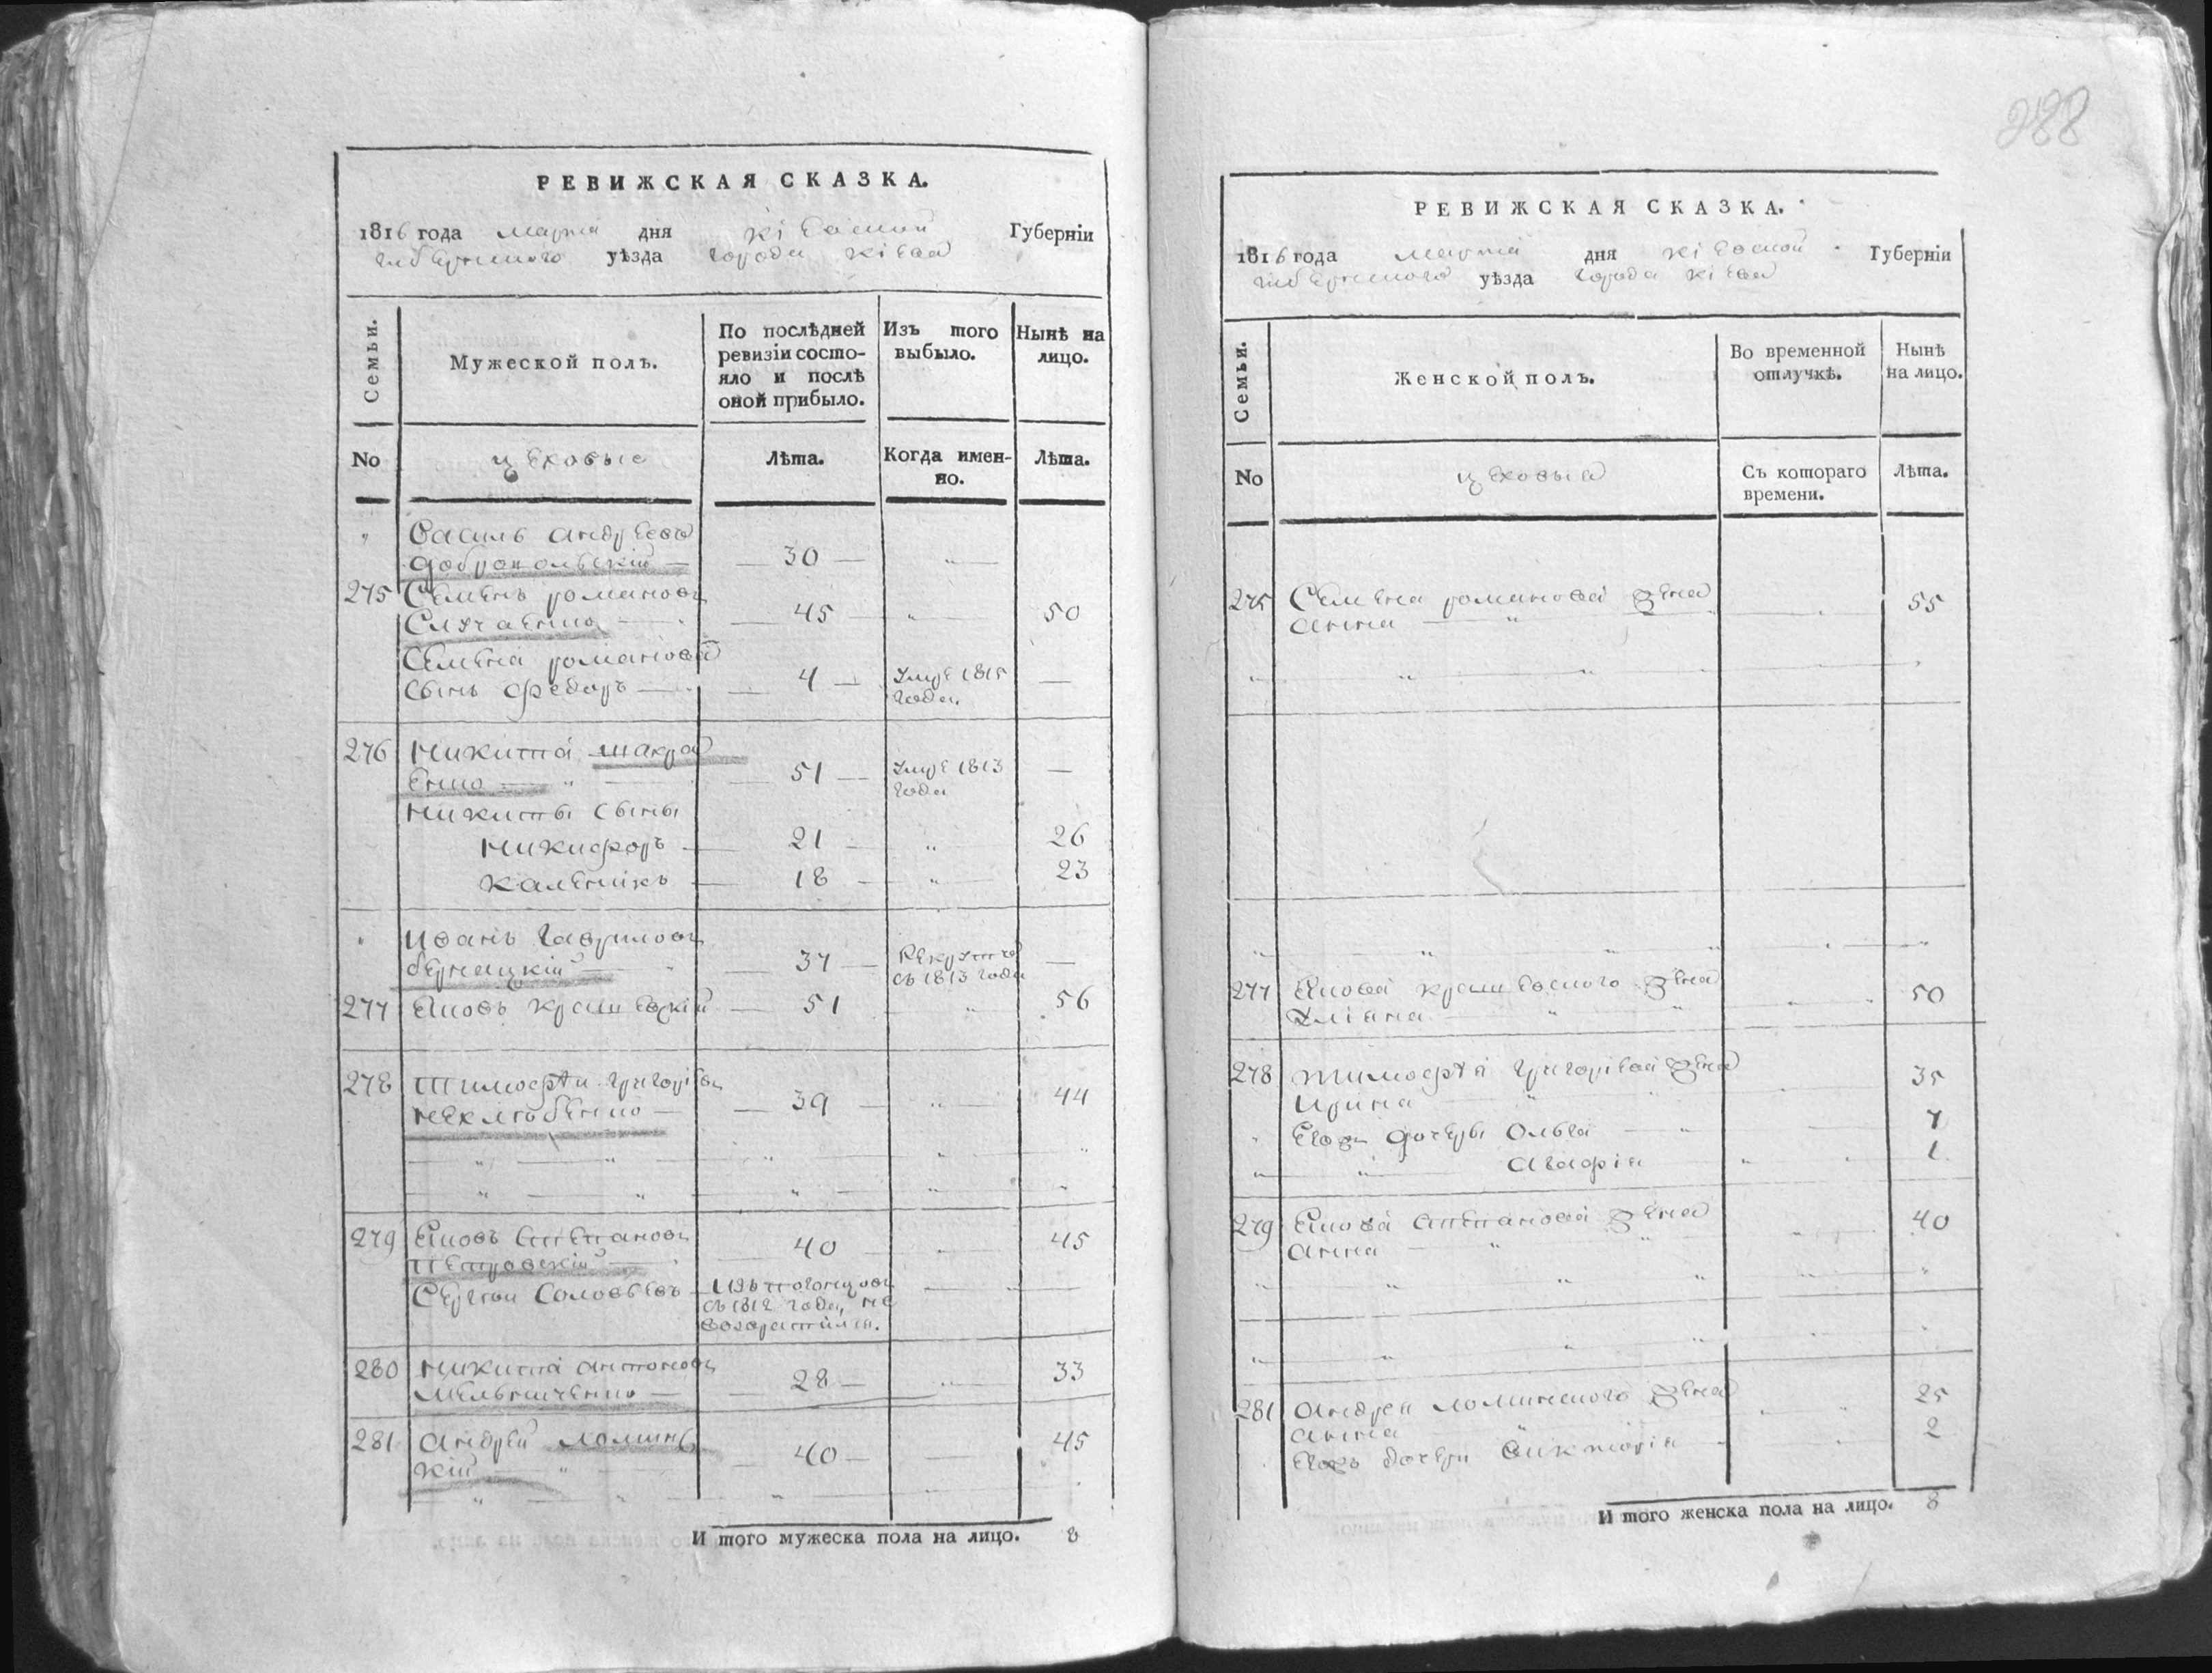 288
РЕВИЖСКАЯ СКАЗКА.
1816 года марта дня кіевской Губерніи
губернского уѣзда города кіева
Семьи.
Мужеской полъ.
По послѣдней ревизіи состояло и послѣ оной прибыло.
Изъ того выбыло.
Нынѣ на лицо.
No
цеховые
Лѣта.
Когда именно.
Лѣта.
" Василь андреевъ
добропольскій — 30 — "
275 Семенъ романовъ
— 45 — " 50
Семена романова
сынъ федоръ — 4 — умре 1815 —
года.
276 Никита макра
енко — 51 — умре 1813 —
года
Никиты сыны
Никифоръ — 21 — " 26
каленикъ — 18 — " 23
" Иванъ гавриловъ
бернацкій — 37 — Рекрутъ —
съ 1813 года
277 Яковъ 51 — " 56
278 тимофѣй григоріевъ
нехлюбенко — 39 — " 44
279 Яковъ степановъ
петровскій — 40 — " 45
Сергѣй Соловьевъ —
съ 1812 года, не
возвратился.
280 Никита антоновъ
мельниченко — 28 — " 33
281 андрей ломинс
кій — 40 — 45
И того мужеска пола на лицо. 8
РЕВИЖСКАЯ СКАЗКА.
1816 года марта дня кіевской Губерніи
губернского уѣзда города кіева
Семьи.
Женской полъ.
Во временной отлучкѣ.
Нынѣ на лицо.
No
цеховыя
Съ котораго времени.
Лѣта.
275 Семена романова жена
анна — " 55
277 Якова жена
Уліяна — " 50
278 тимофѣя григоріева жена
Ирина 35
Его дочеры Ольга — " 7
агафія 1
279 Якова степанова жена
анна — " 40
281 андрея ломинского жена
анна 25
Его дочери викторія 2
И того женска пола на лицо. 8